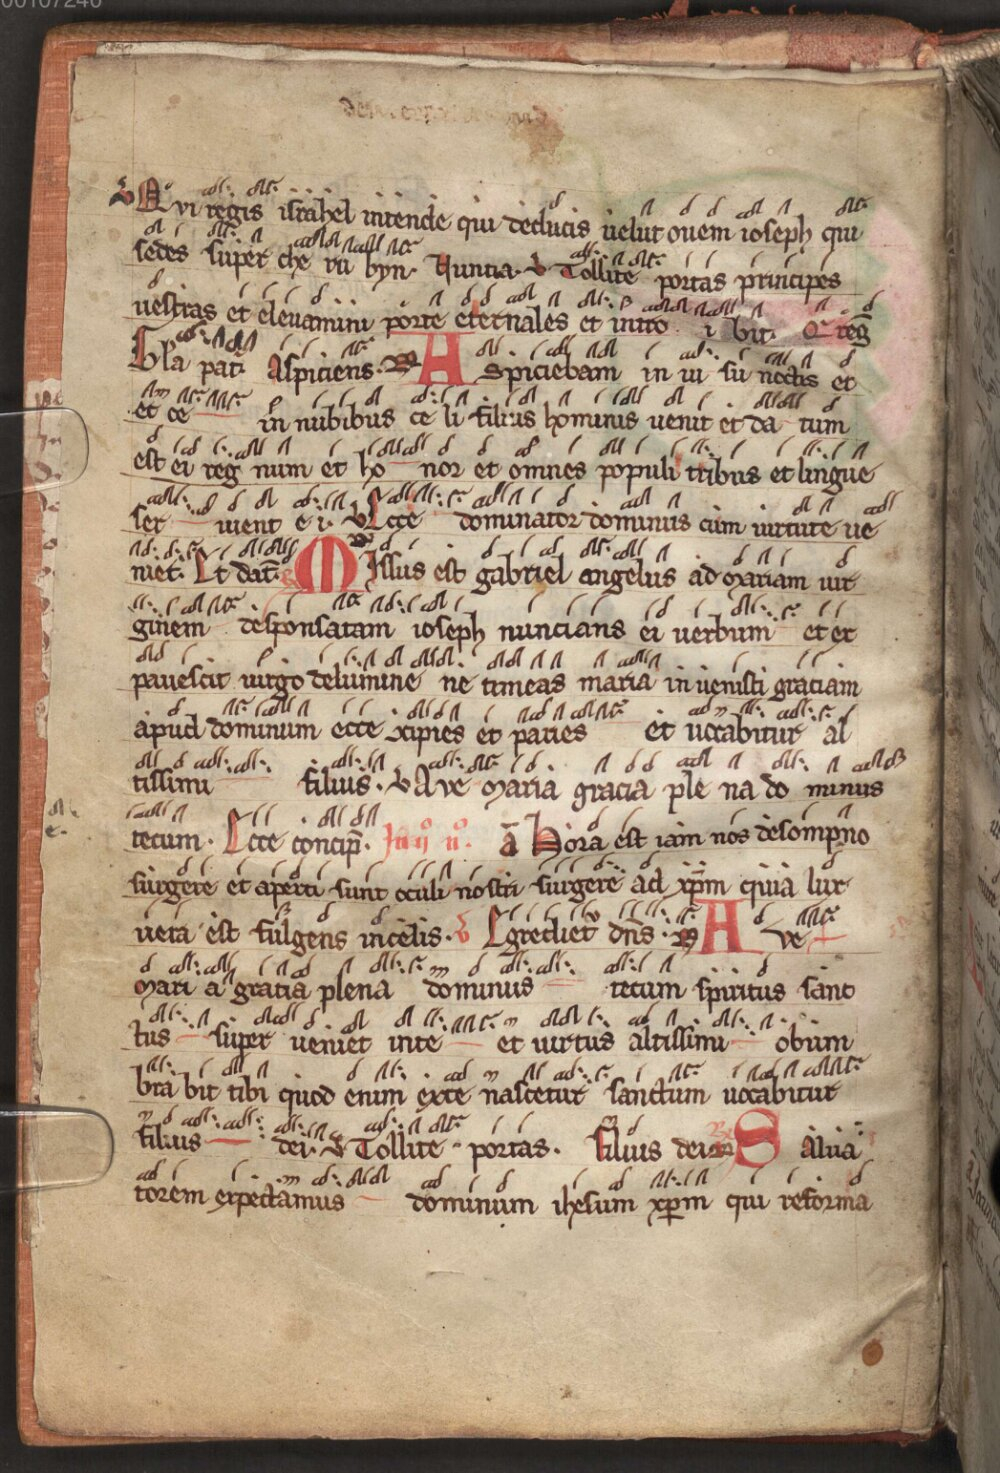 00107240
v Qvi regis israhel intende qui deducis uelut ouem ioseph qui
sedes super che ru byn. Nuncia. v Tollite portas principes
uestras et eleuamini porte eternales et intro i bit. Q reg̅
Gl'a patri Aspiciens. R A spiciebam in ui su noctis et
et ce in nubibus ce li filius hominis uenit et da tum
est ei reg num et ho nor et omnes populi tribus et lingue
ser uient e i. v Ecce dominator dominus cum uirtute ue
niet. Et dat̅. R Missus est gabriel angelus ad mariam uir
ginem desponsatam ioseph nuncians ei uerbum et ex
pauescit uirgo delumine ne timeas maria in uenisti graciam
apud dominum ecce ɔcipies et paries et uocabitur al
tissimi filius. v Ave maria gracia ple na do minus
tecum. Ecce concip̅. In ij n̊. a̅ Hora est iam nos desompno
surgere et aperti sunt oculi nostri surgere ad xp̅m quia lux
uera est fulgens incelis. v Egrediet̅ dn̅s. R A ve
mari a gratia plena dominus tecum spiritus sanc
tus super ueniet inte et uirtus altissimi obum
bra bit tibi quod enim exte nascetur sanctum uocabitur
filius dei. v Tollite portas. filius dei R S alua
torem expectamus dominum ihesum xp̅m qui reforma